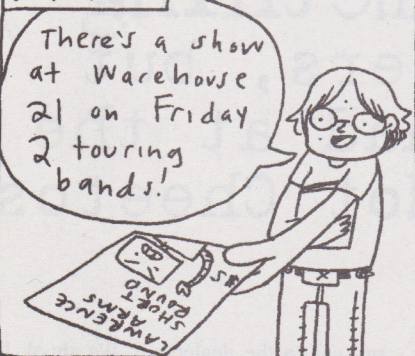 There's a show
at Warehouse
21 on Friday
2 touring
bands!
LAWRENCE
ARMS
SHORT
ROUND
$5